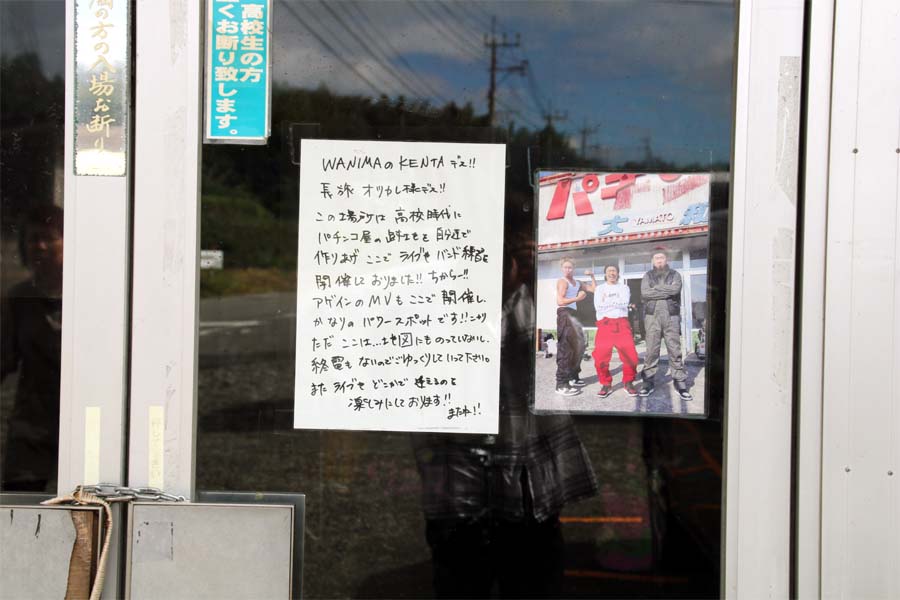 の方の入場お断り
高校生の方
くお断り致します。
WANIMAのKENTAデス!!
長旅 オツカレ様デス!!
この場所は 高校時代に
パチンコ屋の跡土地を 自分達で
作りあげ ここで ライブや バンド練習を
開催しておりました!! ちからー!!
アゲインのMVも ここで 開催し、
かなりの パワースポット です!!
ただ ここは…地図にも のっていないし、
終電も ないのでごゆっくりしていって下さい。
また ライブや どこかで 逢えるのを
楽しみにしております!!
またね!!
パチ
大
YAMATO